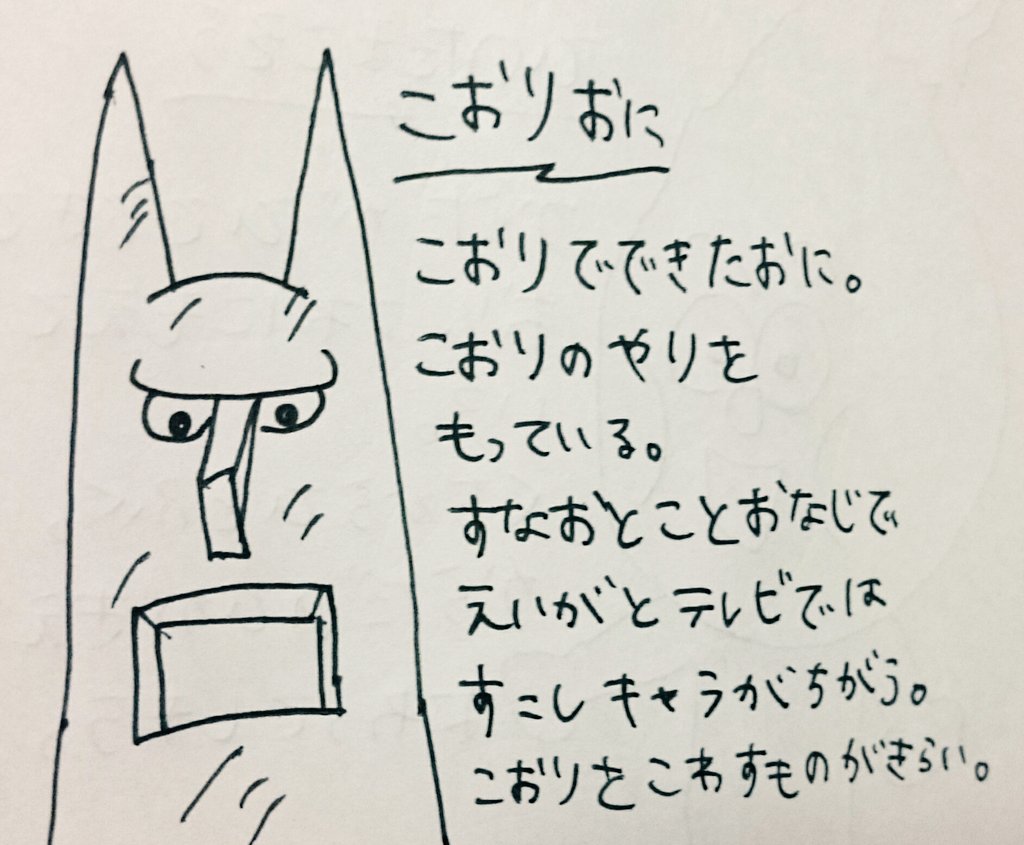 こおりおに
こおりでできたおに。
こおりのやりを
もっている。
すなおとことおなじで
えいがとテレビでは
すこしキャラがちがう。
こおりをこわすものがきらい。